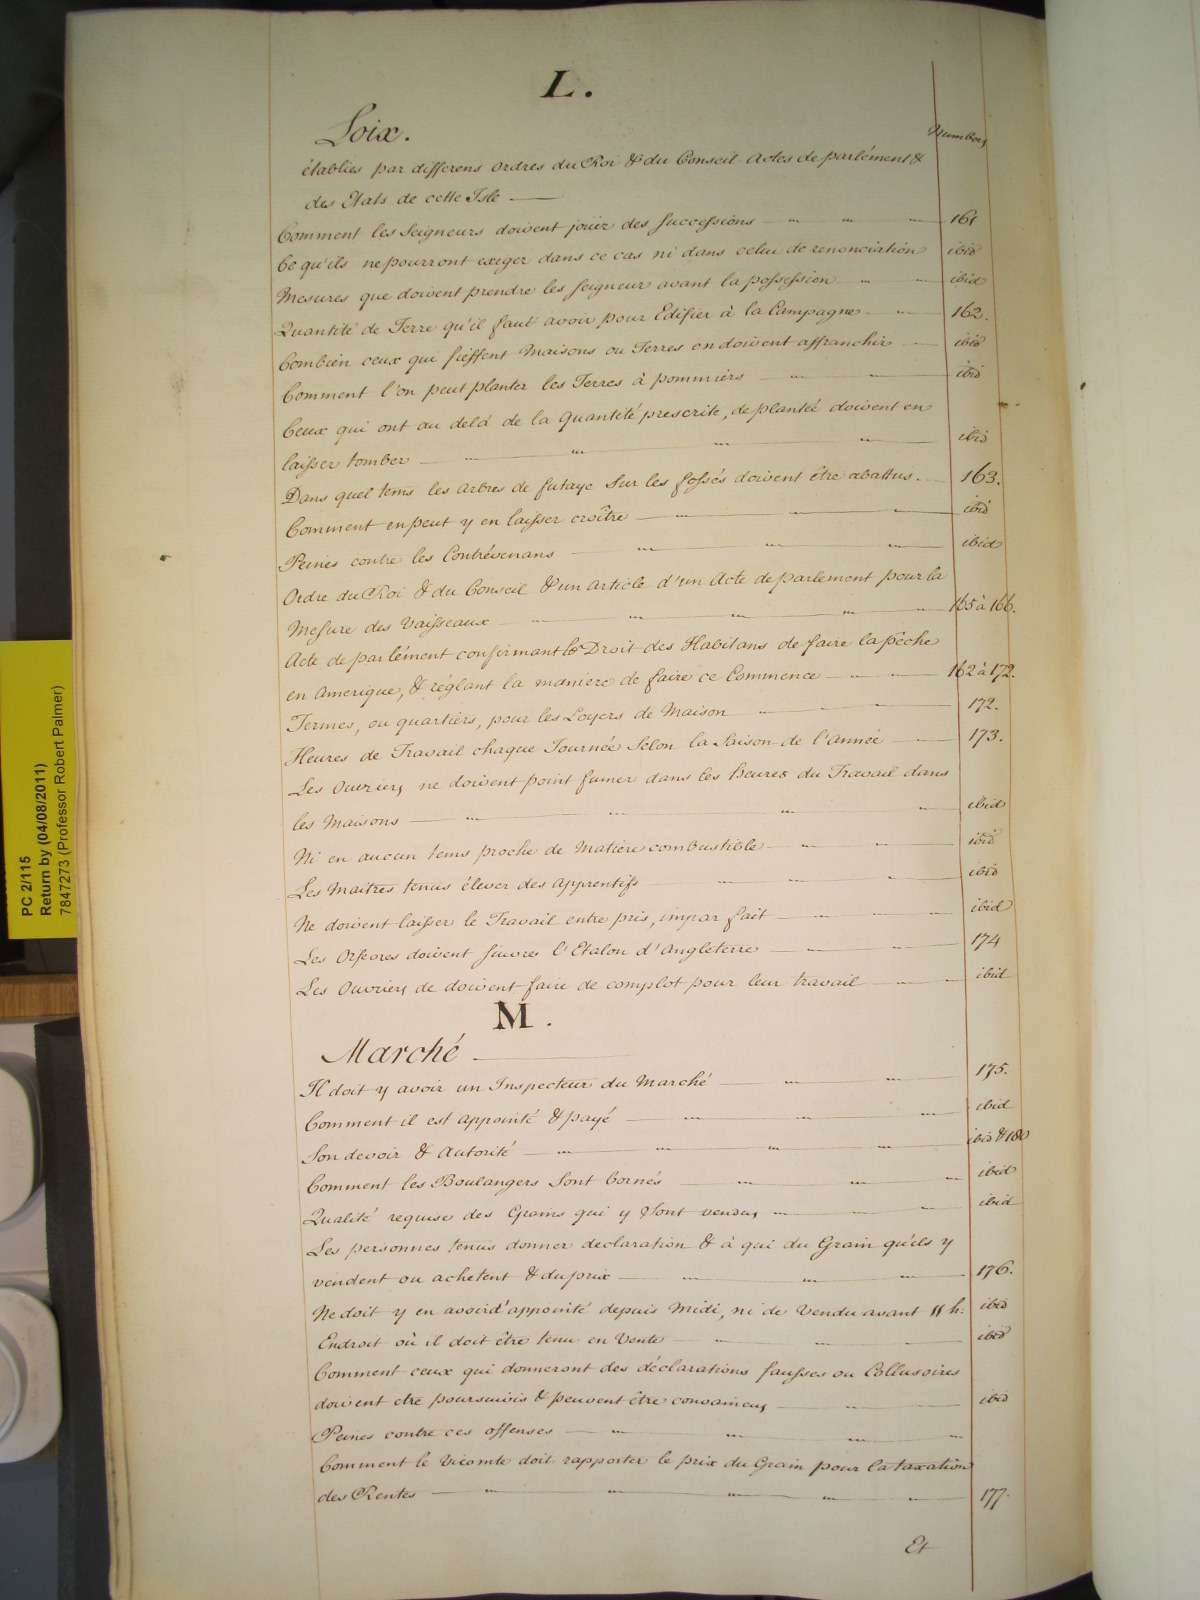 L.
Loix.
Numbers
établies par differens ordres du Roi & du Conseil Actes de parlément &
des Etats de cette Isle
Comment les Seigneurs doivent joüir des Successions 161
Ce qu'ils ne pourront exiger dans ce cas ni dans celui de renonciation ibid
Mesures que doivent prendre les seigneur avant la possession ibid
Quantité de Terre qu'il faut avoir pour Edifier à la Campagne 162.
Combien ceux qui fieffent Maisons ou Terres en doivent affranchir ibid
Comment l'on peut planter les Terres à pommiers ibid
Ceux qui ont au delà de la Quantité prescrite, de plantée doivent en
laisser tomber ibid
Dans quel tems les arbres de futaye sur les fossés doivent être abattus. 163.
Comment en peut y en laisser croître ibid
Peines contre les Contrévenans ibid
Ordre du Roi & du Conseil & un article d'un Acte de parlement pour la
Mesure des Vaisseaux 165 à 166.
Acte de parlément confirmant le Droit des Habitans de faire la pêche
en Amerique, & réglant la maniere de faire ce Commence 162 à 172.
Termes, ou quartiers, pour les Loyers de Maison 172.
Heures de Travail chaque Journée Selon la Saison de l'année 173.
Les Ouvriers ne doivent point fumer dans les heures du Travail dans
les Maisons ibid
Ni en aucun tems proche de Matière combustible ibid
Les Maitres tenus élever des apprentifs ibid
Ne doivent laisser le Travail entre pris, impar fait ibid
Les Orfeores doivent suivres l'Etalon d'Angleterre 174
Les Ouvriers de doivent faire de complot pour leur travail ibid
M.
Marché
Il doit y avoir un Inspecteur du Marché 175.
Comment il est appointé & payé ibid
Son devoir & Autorité ibid & 180
Comment les Boulangers Sont bornés ibid
Qualité requise des Grains qui y Sont vendus ibid
Les personnes tenus donner declaration & à qui du Grain qu'ils y
vendent ou achetent & du prix 176.
Ne doit y en avoir d'appointé depuis Midi, ni de Vendu avant 11 h: ibid
Endroit où il doit être tenu en Vente ibid
Comment ceux qui donneront des déclarations fausses ou Collusoires
doivent etre poursuivis & peuvent être convaincus ibid
Peines contre ces offenses
Comment le Vicomte doit rapporter le prix du Grain pour la taxation
des Rentes 177.
Et
PC 2/115
Return by (04/08/2011)
7847273 (Professor Robert Palmer)